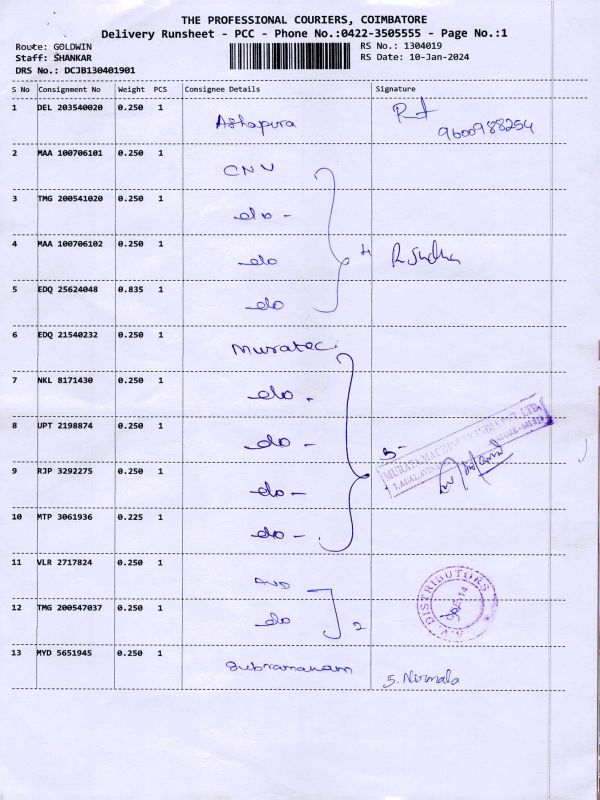 THE PROFESSIONAL COURIERS, COIMBATORE
Delivery Runsheet - PCC - Phone No.:0422-3505555 - Page No.:1
Route: GOLDWIN RS No.: 1304019
Staff: SHANKAR RS Date: 10-Jan-2024
DRS No.: DCJB130401901
S No Consignment No Weight PCS Consignee Details Signature
1 DEL 203540020 0.250 1 Ashapura
9600988254
2 MAA 100706101 0.250 1 CNV
3 TMG 200541020 0.250 1 do -
4 MAA 100706102 0.250 1 do 4 R Sudha
5 EDQ 25624048 0.835 1 do
6 EDQ 21540232 0.250 1 Muratec
7 NKL 8171430 0.250 1 do -
8 UPT 2198874 0.250 1 do - 5
MURATA MACHINERY INDIA PVT. LTD.
9 RJP 3292275 0.250 1 do -
10 MTP 3061936 0.225 1 do -
11 VLR 2717824 0.250 1
12 TMG 200547037 0.250 1 do 2
S.V. DISTRIBUTORS
13 MYD 5651945 0.250 1 Subramaniam S. Nirmala